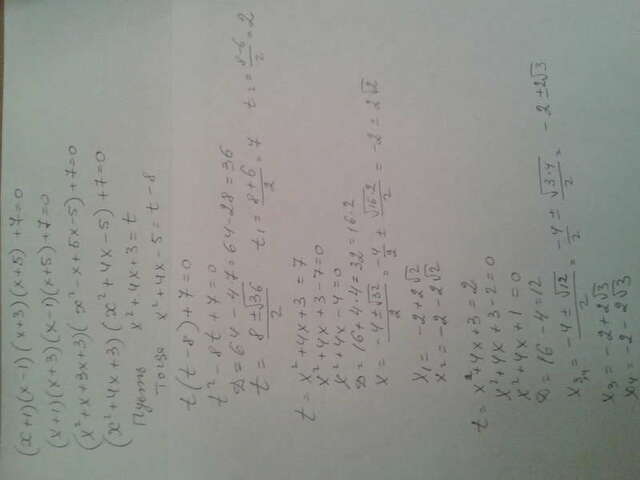 (x+1)(x-1)(x+3)(x+5)+7=0
(x+1)(x+3)(x-1)(x+5)+7=0
(x²+x+3x+3)(x²-x+5x-5)+7=0
(x²+4x+3)(x²+4x-5)+7=0
Пусть x²+4x+3=t
тогда x²+4x-5=t-8
t(t-8)+7=0
t²-8t+7=0
D=64-4·7=64-28=36
t=(8±√36)/2 t₁=(8+6)/2=7 t₂=(8-6)/2=2
t=x²+4x+3=7
x²+4x+3-7=0
x²+4x-4=0
D=16+4·4=32=16·2
x=(-4±√32)/2=-4/2±√(16·2)/2=-2±2√2
x₁=-2+2√2
x₂=-2-2√2
t=x²+4x+3=2
x²+4x+3-2=0
x²+4x+1=0
D=16-4=12
x₃,₄=(-4±√12)/2=-4/2±√(3·4)/2=-2±2√3
x₃=-2+2√3
x₄=-2-2√3